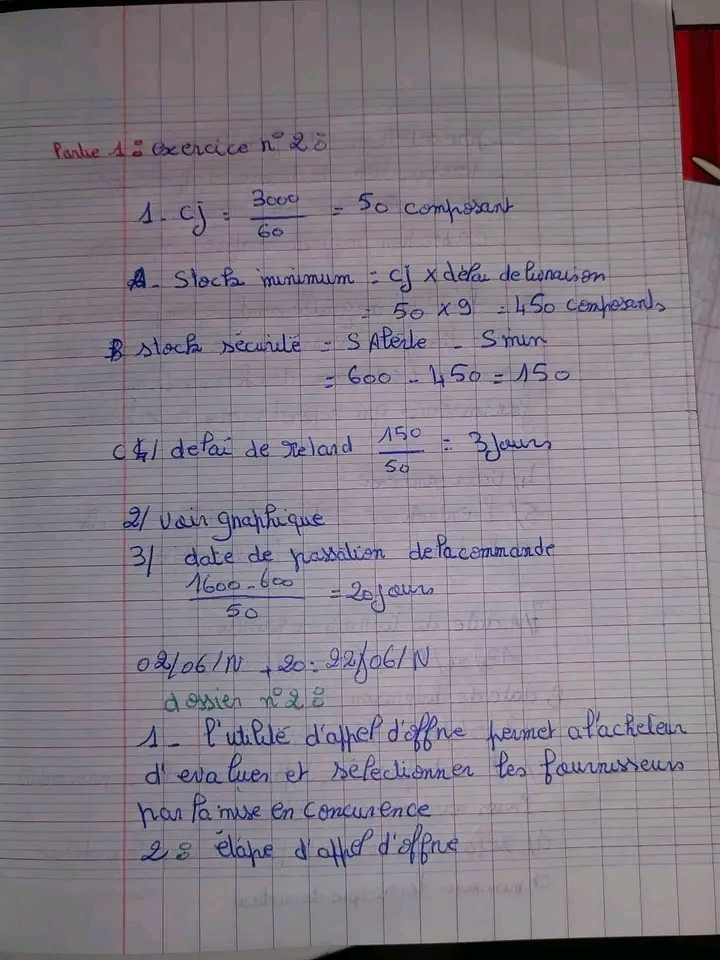 Partie 1 : exercice n° 2 :
1 - Cj = 3000/60 = 50 composant
A - Stock minimum = Cj x délai de livraison
= 50 x 9 = 450 composants
B stock sécurité = S Alerte - S min
= 600 - 450 = 150
C / delai de retard 150/50 = 3 Jours
2/ voir graphique
3/ date de passation de la commande
1600 - 600/50 = 20 jours
02/06/N + 20 = 22/06/N
dossier n° 2 :
1 - l'utilité d'appel d'offre permet a l'acheteur
d'evaluer et sélectionner les fournisseurs
par la mise en concurence
2 : étape d'appel d'offre